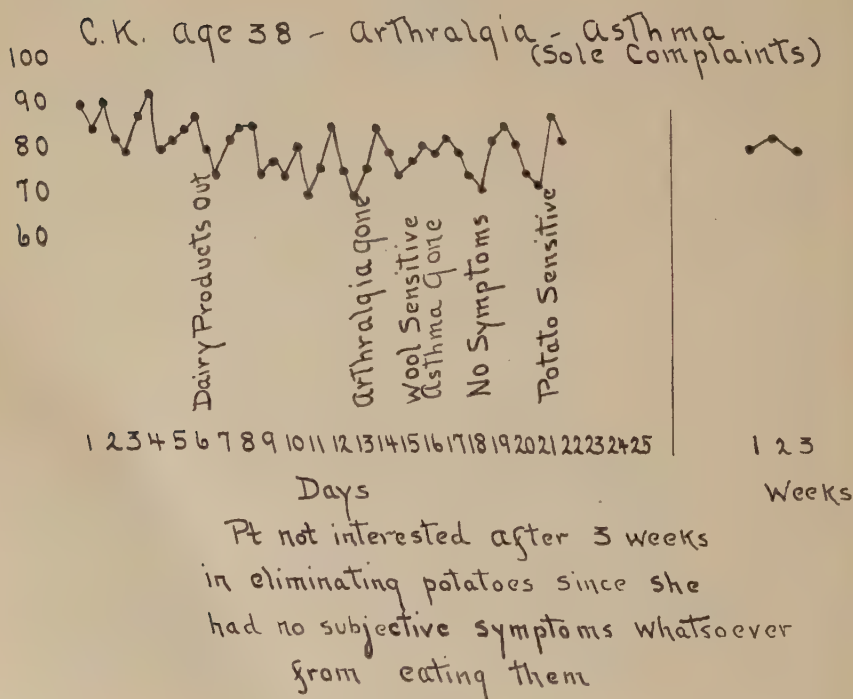 C.K. age 38 - Arthralgia - Asthma
(Sole Complaints)
100
90
80
70
60
Dairy Products Out
Arthralgia gone
Wool Sensitive
Asthma Gone
No Symptoms
Potato Sensitive
1 2 3 4 5 6 7 8 9 10 11 12 13 14 15 16 17 18 19 20 21 22 23 24 25
1 2 3
Days
Weeks
Pt not interested after 3 weeks
in eliminating potatoes since she
had no subjective symptoms whatsoever
from eating them